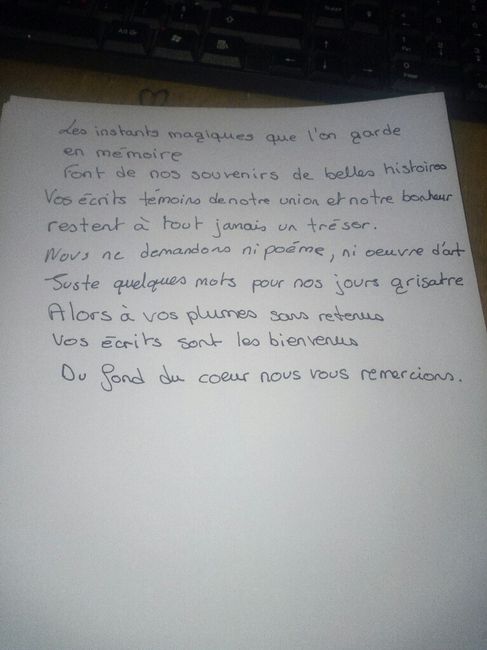 Les instants magiques que l'on garde
en mémoire
Font de nos souvenirs de belles histoires
Vos écrits témoins de notre union et notre bonheur
restent à tout jamais un trésor.
Nous ne demandons ni poéme, ni oeuvre d'art
Juste quelques mots pour nos jours grisatre
Alors à vos plumes sans retenus
Vos écrits sont les bienvenus
Du fond du coeur nous vous remercions.